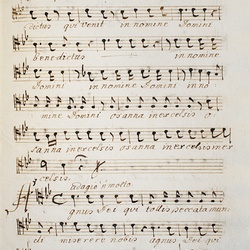 dictus qui venit in nomine Domini
benedictus in nomine
Domini in nomine Domini in no
mine Domini osanna in excelsis o
sanna in excelsis osanna in excelsis in ex
celsis.
adagio
gnus Dei qui tollis peccata mun
di miserere nobis agnus Dei qui